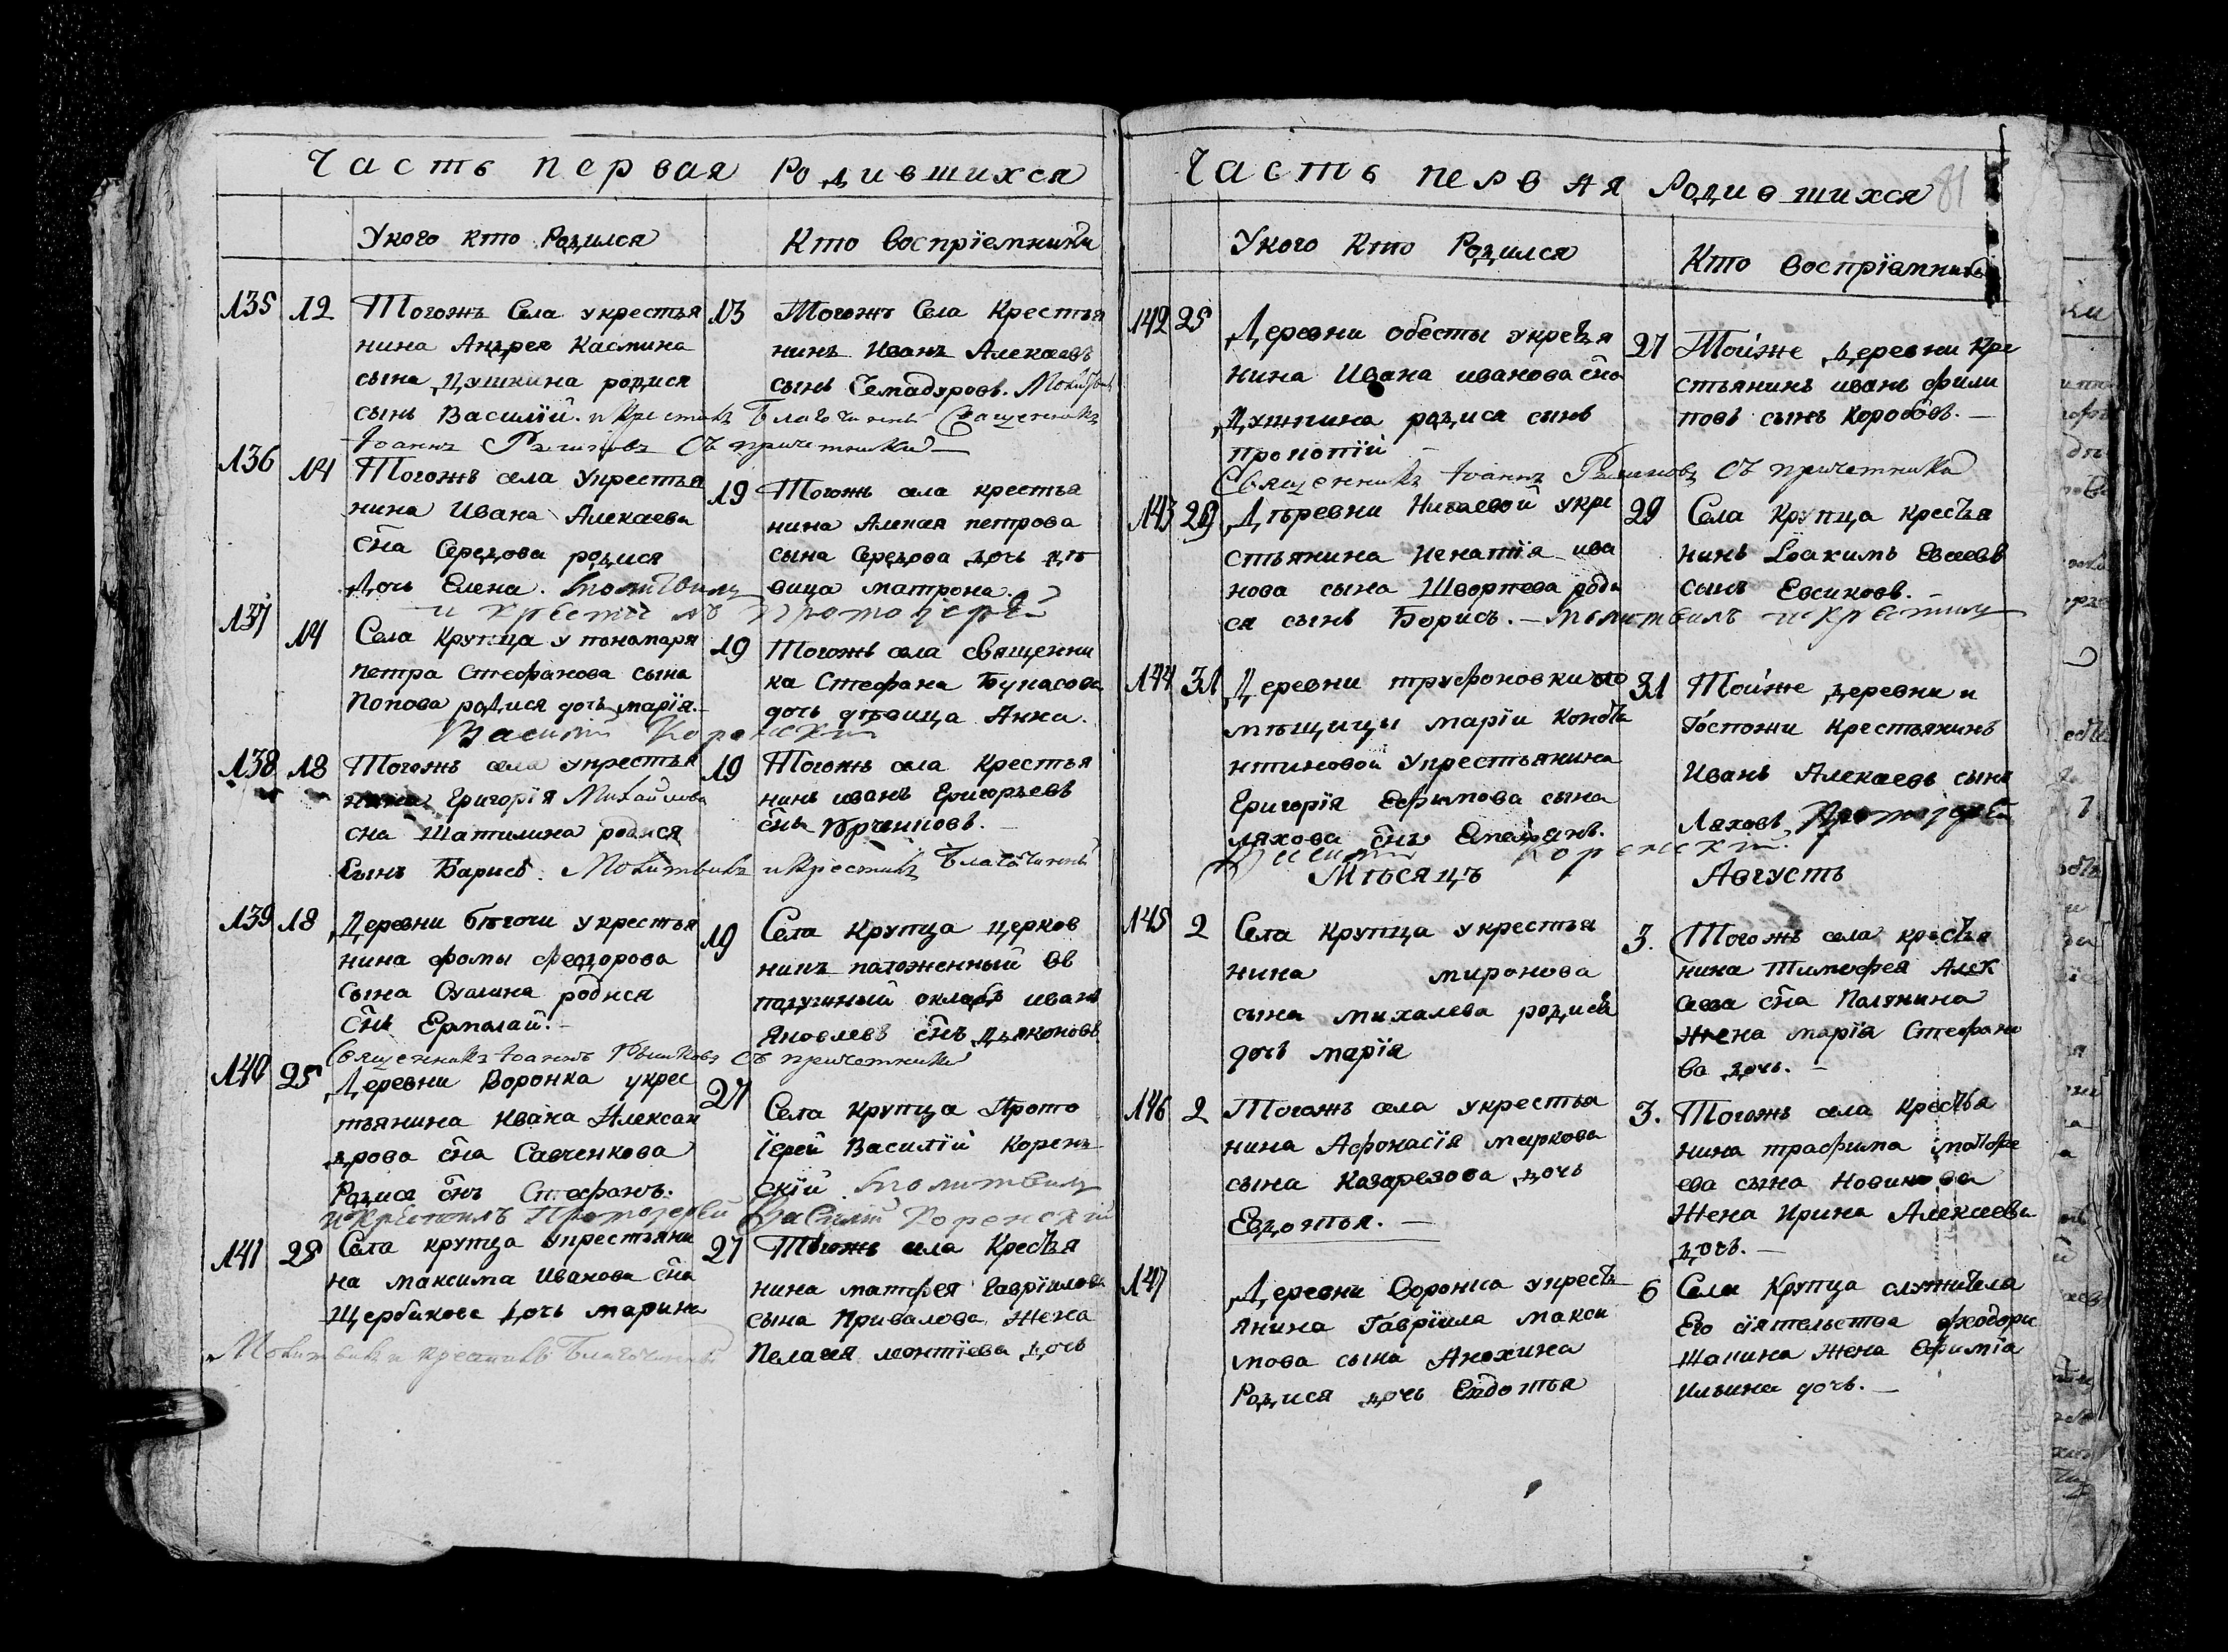 Часть первая Родившихся
Укого кто Родился
Кто воспрїемники
135 12 Тогожъ Села укрестья
нина Андрея Касмина
сына Душкина родися
сынъ Василїй. и крестилъ Благочинный Священникъ
Іоаннъ съ причетники
13 Тогожъ Села Крестья
нинъ Иванъ Алексеевъ
сынъ Семадуровъ.
136 14 Тогожъ села Укрестья
нина Ивана Алексаева
сна Середова родися
Дочь Елена. молитвилъ
и крестилъ Протоїерей
19 Тогожъ села крестья
нина Алексея петрова
сына Середова дочь дѣ
вица матрона.
137 14 Села Крупца у пономаря
петра Стефанова сына
Попова родися дочь марїя.
Василїй Коренскїй
19 Тогожъ села священни
ка Стефана Бунасова
дочь дѣвица Анна.
138 18 Тогожъ села укрестья
нина Григорїя Михайлова
сна Шатилина родися
Сынъ Барисъ. Молитвилъ и крестилъ Благочинный
19 Тогожъ села крестья
нинъ иванъ Григорьевъ
снъ
139 18 Деревни бѣгочи укрестья
нина фомы Феодорова
Сына родися
Снъ Ермалай.
Священникъ Іоаннъ съ причетники
19 Села Крупца церков
никъ положенный въ
падушный окладъ иванъ
Яковлевъ снъ Дьяконовъ
140 25 Деревни Воронка укрес
тьянина Ивана Алексан
дрова сна Савченкова
Родися снъ Стефанъ.
и крестилъ Протоїерей Василїй Коренскїй
27 Села Крупца Прото
їерей Василїй Корен
скїй молитвилъ
141 25 Села крупца укрестьяни
на максима Иванова сна
Щербакова дочь марина
Молитвилъ и крестилъ Благочинный
27 Тогожъ села Кресть
нина матфея Гаврїилова
сына Привалова Жена
Пелагея леонтїева дочь
Часть первая Родившихся 81
Укого Кто Родился
Кто воспрїемники
142 25 Деревни обесты укрестья
нина Ивана иванова сна
Душкина родися сынъ
прокопїй
Священникъ Іоаннъ съ причетники
27 Тойже деревни кре
стьянинъ иванъ фили
повъ сынъ Коробовъ.
143 29 Дѣревни укре
стьянина игнатїя ива
нова сына роди
ся сынъ Борисъ. молитвилъ и крестилъ
29 Села Крупца кресья
нинъ Іоакимъ Евсеевъ
сынъ Евсиковъ.
144 31 Деревни труфоновки по
мѣщицы марїи Конста
нтиновой укрестьянина
Григорїя Ефимова сына
ляхова снъ Емельянъ.
Василїй Коренскїй
31 Тойже деревни и
Госпожи Крестьянинъ
Иванъ Алексаевъ сынъ
Ляховъ Протоїерей
Мѣсяцъ Августъ
145 2 Села крупца укрестья
нина миронова
сына михалева родися
дочь марїя
3. Тогожъ села кресья
нина Тимофея Алек
сеева сна Палянина
жена марїя Стефано
ва дочь.
146 2 Тогожъ села укрестья
нина Афонасїя маркова
сына Казарезова дочь
Евдотья.
3. Тогожъ села крестья
нина трафима матфе
ева сына Новикова
Жена Ирина Алексеева
дочь.
147 Деревни Воронка укресть
янина Гаврїила макси
мова сына Анохина
Родися дочь Евдотья
6 Села Крупца служителя
Его сїятельства феодора
Шанина жена Ефимїа
Ильина дочь.